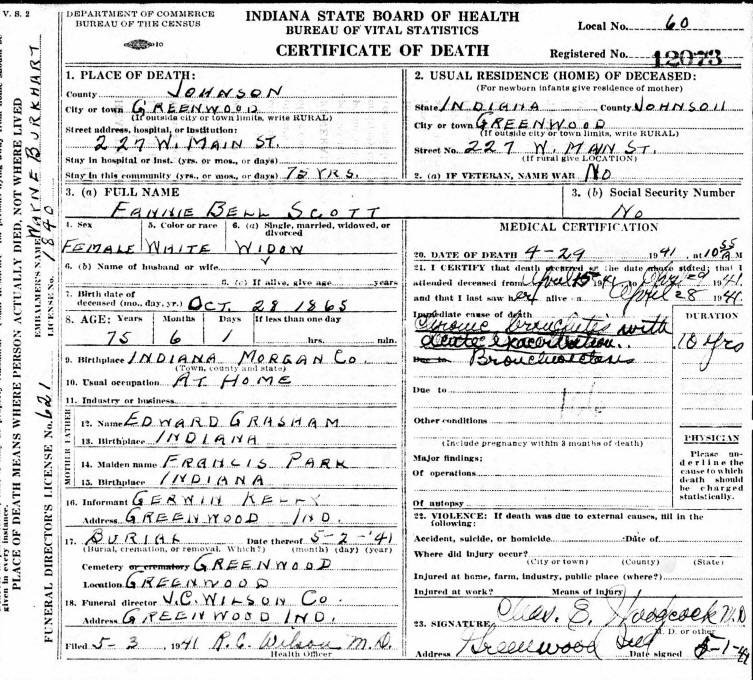 V. S. 2
DEPARTMENT OF COMMERCE
BUREAU OF THE CENSUS
INDIANA STATE BOARD OF HEALTH
BUREAU OF VITAL STATISTICS
CERTIFICATE OF DEATH
Local No. 60
Registered No. 12073
1. PLACE OF DEATH:
County JOHNSON
City or town GREENWOOD
(If outside city or town limits, write RURAL)
Street address, hospital, or institution:
227 W. MAIN ST.
Stay in hospital or inst. (yrs. or mos., or days)
Stay in this community (yrs., or mos., or days) 75 YRS.
2. USUAL RESIDENCE (HOME) OF DECEASED:
(For newborn infants give residence of mother)
State INDIANA County JOHNSON
City or town GREENWOOD
(If outside city or town limits, write RURAL)
Street No. 227 W. MAIN ST.
(If rural give LOCATION)
2. (a) IF VETERAN, NAME WAR NO
3. (a) FULL NAME
FANNIE BELL SCOTT
3. (b) Social Security Number
NO
4. Sex
FEMALE
5. Color or race
WHITE
6. (a) Single, married, widowed, or divorced
WIDOW
6. (b) Name of husband or wife
6. (c) If alive, give age years
7. Birth date of
deceased (mo., day, yr.) OCT. 28 1865
8. AGE: Years Months Days If less than one day
75 6 1 hrs. min.
9. Birthplace INDIANA MORGAN CO.
(Town, county and state)
10. Usual occupation AT HOME
11. Industry or business
FATHER
12. Name EDWARD GRASHAM
13. Birthplace INDIANA
MOTHER
14. Maiden name FRANCIS PARK
15. Birthplace INDIANA
16. Informant GERWIN KELLY
Address GREENWOOD IND.
17. BURIAL Date thereof 5-2-'41
(Burial, cremation, or removal. Which?) (month) (day) (year)
Cemetery or crematory GREENWOOD
Location GREENWOOD
18. Funeral director J.C. WILSON CO.
Address GREENWOOD IND.
Filed 5-3, 1941 R.C. Wilson M.D.
Health Officer
MEDICAL CERTIFICATION
20. DATE OF DEATH 4-29 1941, at 10 55 A M
21. I CERTIFY that death occurred on the date above stated; that I
attended deceased from April 15 1941 to Apr. 29 1941
and that I last saw her alive on April 28 1941
Immediate cause of death
Chronic bronchitis with
acute exacerbation.
Due to Bronchiectasis
DURATION
10 yrs
Due to
Other conditions
(Include pregnancy within 3 months of death)
Major findings:
Of operations
Of autopsy
PHYSICIAN
Please un-
derline the
cause to which
death should
be charged
statistically.
22. VIOLENCE: If death was due to external causes, fill in the
following:
Accident, suicide, or homicide Date of
Where did injury occur?
(City or town) (County) (State)
Injured at home, farm, industry, public place (where?)
Injured at work? Means of injury
23. SIGNATURE Chas. E. Woodcock M.D
M. D. or other
Address Greenwood Ind Date signed 5-1-41
given in every instance.
PLACE OF DEATH MEANS WHERE PERSON ACTUALLY DIED, NOT WHERE LIVED
EMBALMER'S NAME WAYNE BURKHART
FUNERAL DIRECTOR'S LICENSE No. 621 LICENSE No. 1840